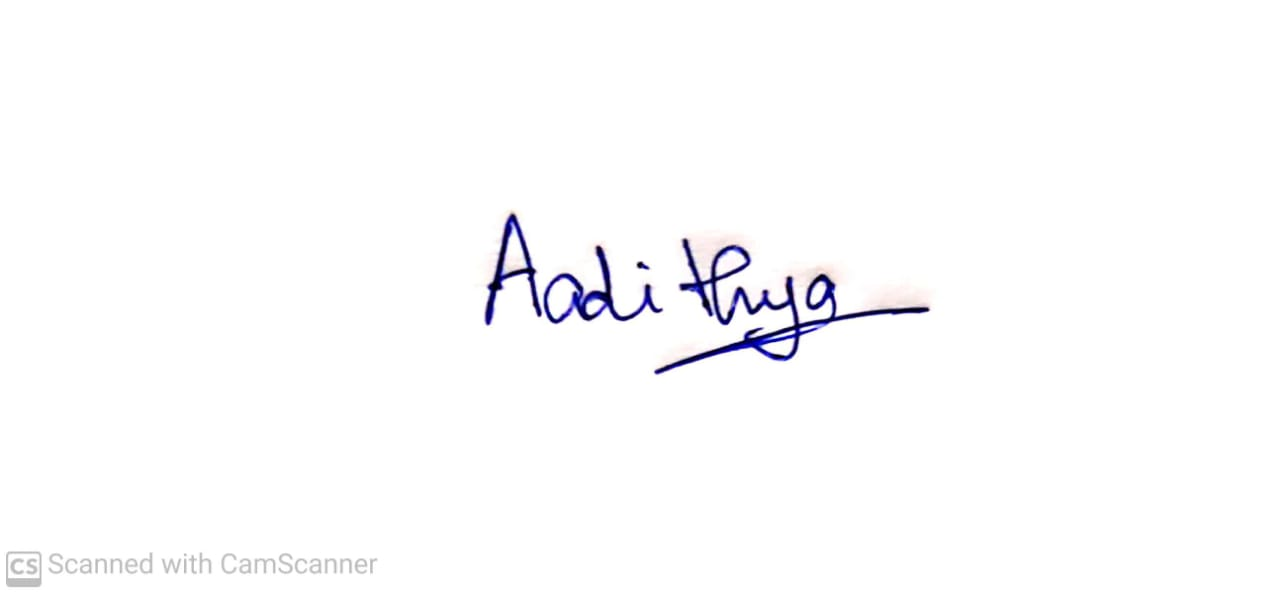 Aadithya
CS Scanned with CamScanner